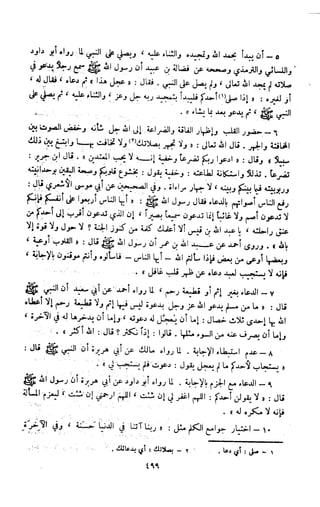 ٥ - أن يبدأ بحمد الله وتمجيده والثناء عليه ، ويصلي على النبي لما رواه أبو داود
والنسائي والترمذي وصححه عن فضالة بن عبيد أن رسول الله ﷺ سمع رجلا يدعو في
صلاته لم يمجد الله تعالى ، ولم يصل على النبي . فقال : « عجل هذا » ثم دعاه ، فقال له ،
أو لغيره : « إذا صلى (١) أحدكم فليبدأ بتمجيد ربه جل وعز ، والثناء عليه ، ثم يصلي على
النبي ﷺ ، ثم يدعو بعد بما يشاء » .
٦ - حضور القلب وإظهار الفاقة والضراعة إلى الله جل شأنه وخفض الصوت بين
المخافتة والجهر . قال الله تعالى : « ولا تجهر بصلاتك (٢) ولا تخافت بها وابتغ بين ذلك
سبيلا » وقال : « ادعوا ربكم تضرعا وخفية إنه لا يحب المعتدين » . قال ابن جرير :
تضرعا . تذللا واستكانة لطاعته ؛ وخفية يقول : بخشوع قلوبكم وصحة اليقين بوحدانيته
وربوبيته فيما بينكم وبينه ، لا جهار مراءاة . وفي الصحيحين عن أبي موسى الأشعري قال :
رفع الناس أصواتهم بالدعاء فقال رسول الله ﷺ : « أيها الناس اربعوا على أنفسكم فإنكم
لا تدعون أصم ولا غائبا إنما تدعون سميعا بصيرا ، إن الذي تدعون أقرب إلى أحدكم من
عنق راحلته ، يا عبد الله بن قيس ألا أعلمك كلمة من كنوز الجنة ؟ لا حول ولا قوة إلا
بالله » . وروى أحمد عن عبد الله بن عمر أن رسول الله ﷺ قال : « القلوب أوعية ،
وبعضها أوعى من بعض فإذا سألتم الله - أيها الناس - فاسألوه وأنتم موقنون بالإجابة ،
فإنه لا يستجيب لعبد دعاه عن ظهر قلب غافل » .
٧ - الدعاء بغير إثم أو قطيعة رحم ، لما رواه أحمد عن أبي سعيد أن النبي ﷺ
قال : « ما من مسلم يدعو الله عز وجل بدعوة ليس فيها إثم ولا قطيعة رحم إلا أعطاه
الله بها إحدى ثلاث خصال : إما أن يعجل له دعوته ، وإما أن يدخرها له في الآخرة ،
وإما أن يصرف عنه من السوء مثلها . قالوا : إذا نكثر ؟ قال : الله أكثر » .
٨ - عدم استبطاء الإجابة . لما رواه مالك عن أبي هريرة أن النبي ﷺ قال :
« يستجاب لأحدكم ما لم يعجل يقول : دعوت فلم يستجب لي » .
٩ - الدعاء مع الجزم بالإجابة . لما رواه أبو داود عن أبي هريرة أن رسول الله ﷺ
قال : « لا يقولن أحدكم : اللهم اغفر لي إن شئت ، اللهم ارحمني إن شئت ، ليعزم المسألة
فإنه لا مكره له » .
١٠ - اختيار جوامع الكلم مثل : « ربنا آتنا في الدنيا حسنة ، وفي الآخرة
١ - صلى : أي دعا . ٢ - بصلاتك : أي بدعائك .
٤٩٩